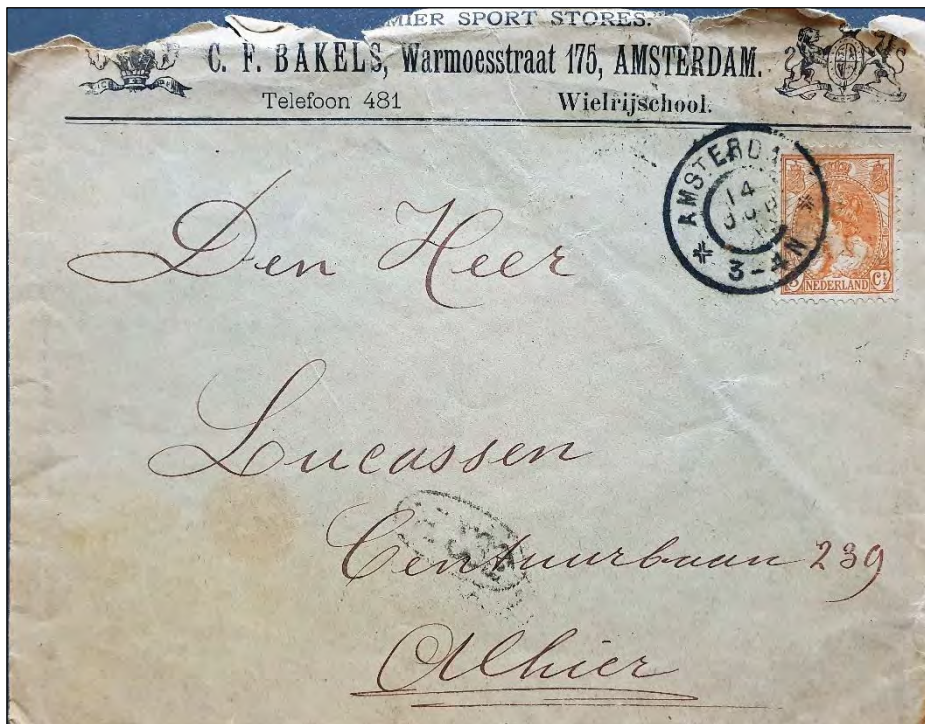 MIER SPORT STORES.
C. F. BAKELS, Warmoesstraat 175, AMSTERDAM.
Telefoon 481 Wielrijschool.
AMSTERDA
14
3-4N
NEDERLAND Ct
Den Heer
Lucassen
Centuurbaan 239
Alhier